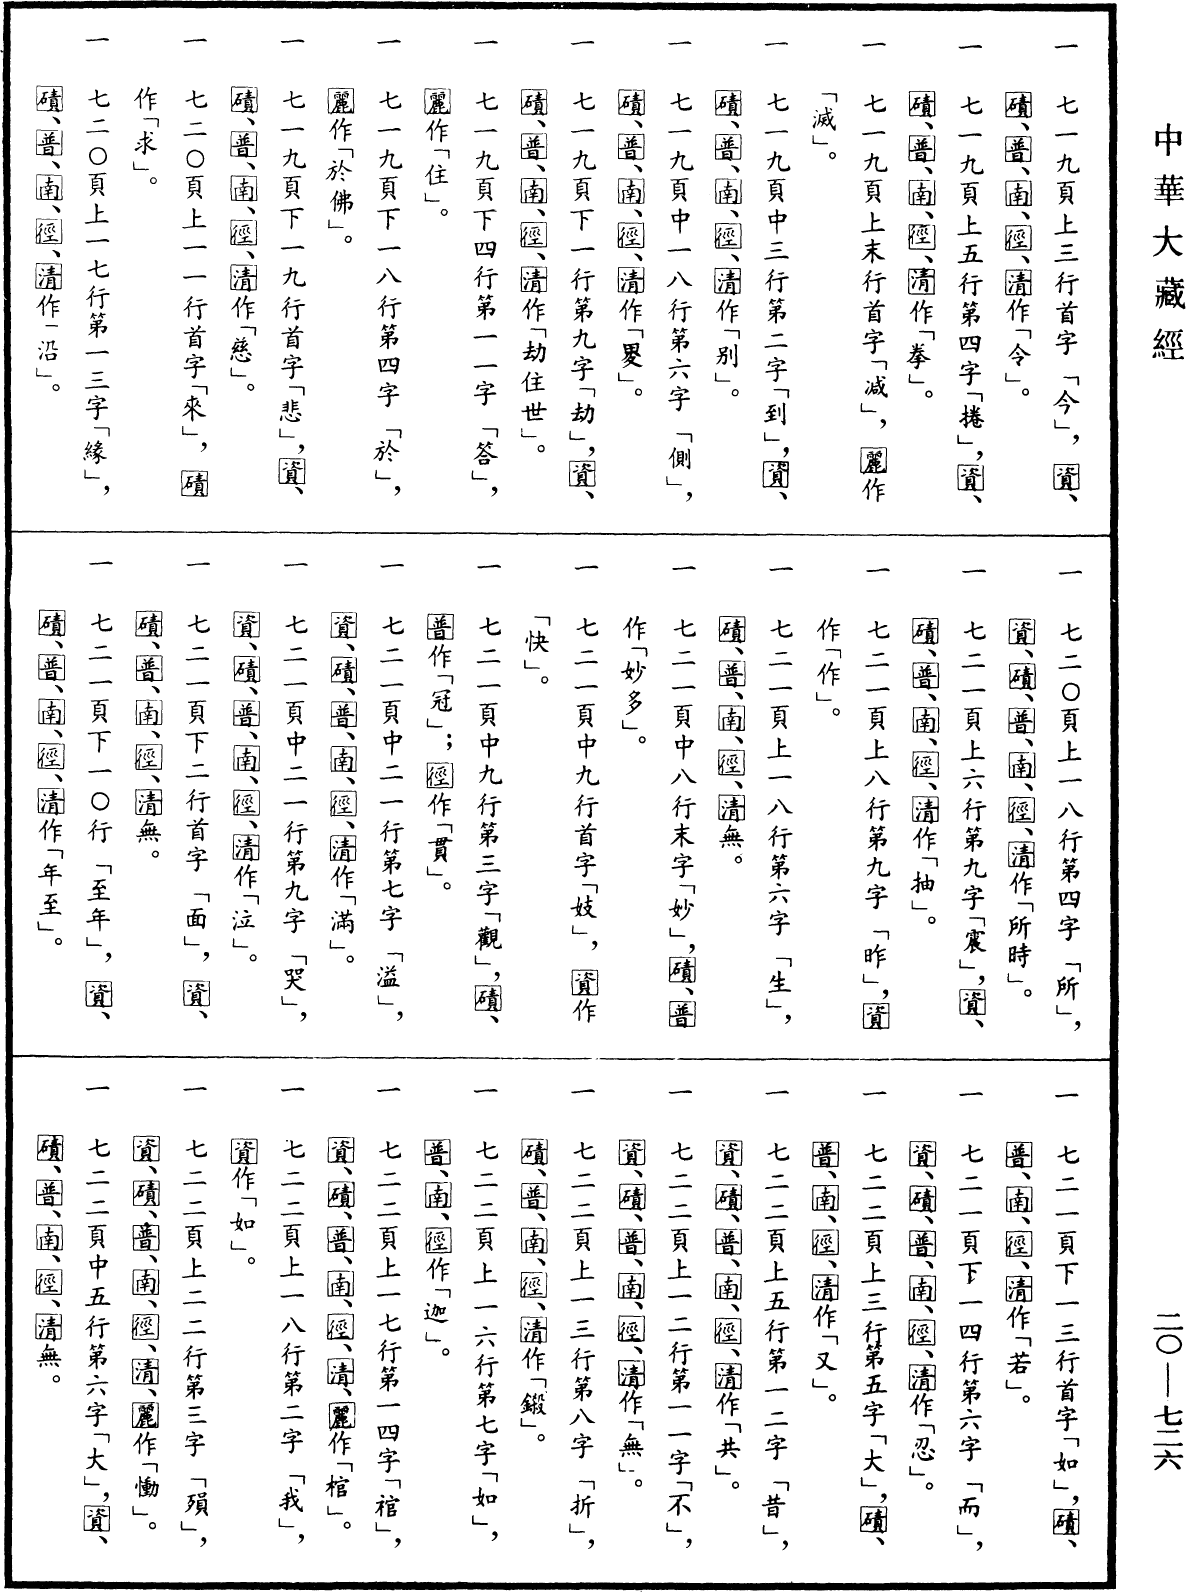 中華大藏經
二〇—七二六
一　七一九頁上三行首字「今」，資、
磧、普、南、徑、清作「令」。
一　七一九頁上五行第四字「捲」，資、
磧、普、南、徑、清作「拳」。
一　七一九頁上末行首字「減」，麗作
「滅」。
一　七一九頁中三行第二字「到」，資、
磧、普、南、徑、清作「別」。
一　七一九頁中一八行第六字「側」，
磧、普、南、徑、清作「畟」。
一　七一九頁下一行第九字「劫」，資、
磧、普、南、徑、清作「劫住世」。
一　七一九頁下四行第一一字「答」，
麗作「住」。
一　七一九頁下一八行第四字「於」，
麗作「於佛」。
一　七一九頁下一九行首字「悲」，資、
磧、普、南、徑、清作「慈」。
一　七二〇頁上一一行首字「來」，磧
作「求」。
一　七二〇頁上一七行第一三字「緣」，
磧、普、南、徑、清作「沿」。
一　七二〇頁上一八行第四字「所」，
資、磧、普、南、徑、清作「所時」。
一　七二一頁上六行第九字「震」，資、
磧、普、南、徑、清作「抽」。
一　七二一頁上八行第九字「昨」，資
作「作」。
一　七二一頁上一八行第六字「生」，
磧、普、南、徑、清無。
一　七二一頁中八行末字「妙」，磧、普
作「妙多」。
一　七二一頁中九行首字「妓」，資作
「快」。
一　七二一頁中九行第三字「觀」，磧、
普作「冠」；徑作「貫」。
一　七二一頁中二一行第七字「溢」，
資、磧、普、南、徑、清作「滿」。
一　七二一頁中二一行第九字「哭」，
資、磧、普、南、徑、清作「泣」。
一　七二一頁下二行首字「面」，資、
磧、普、南、徑、清無。
一　七二一頁下一〇行「至年」，資、
磧、普、南、徑、清作「年至」。
一　七二一頁下一三行首字「如」，磧、
普、南、徑、清作「若」。
一　七二一頁下一四行第六字「而」，
資、磧、普、南、徑、清作「忍」。
一　七二二頁上三行第五字「大」，磧、
普、南、徑、清作「又」。
一　七二二頁上五行第一二字「昔」，
資、磧、普、南、徑、清作「共」。
一　七二二頁上一二行第一一字「不」，
資、磧、普、南、徑、清作「無」。
一　七二二頁上一三行第八字「折」，
磧、普、南、徑、清作「鍛」。
一　七二二頁上一六行第七字「如」，
普、南、徑作「迦」。
一　七二二頁上一七行第一四字「棺」，
資、磧、普、南、徑、清、麗作「棺」。
一　七二二頁上一八行第二字「我」，
資作「如」。
一　七二二頁上二二行第三字「殞」，
資、磧、普、南、徑、清、麗作「慟」。
一　七二二頁中五行第六字「大」，資、
磧、普、南、徑、清無。